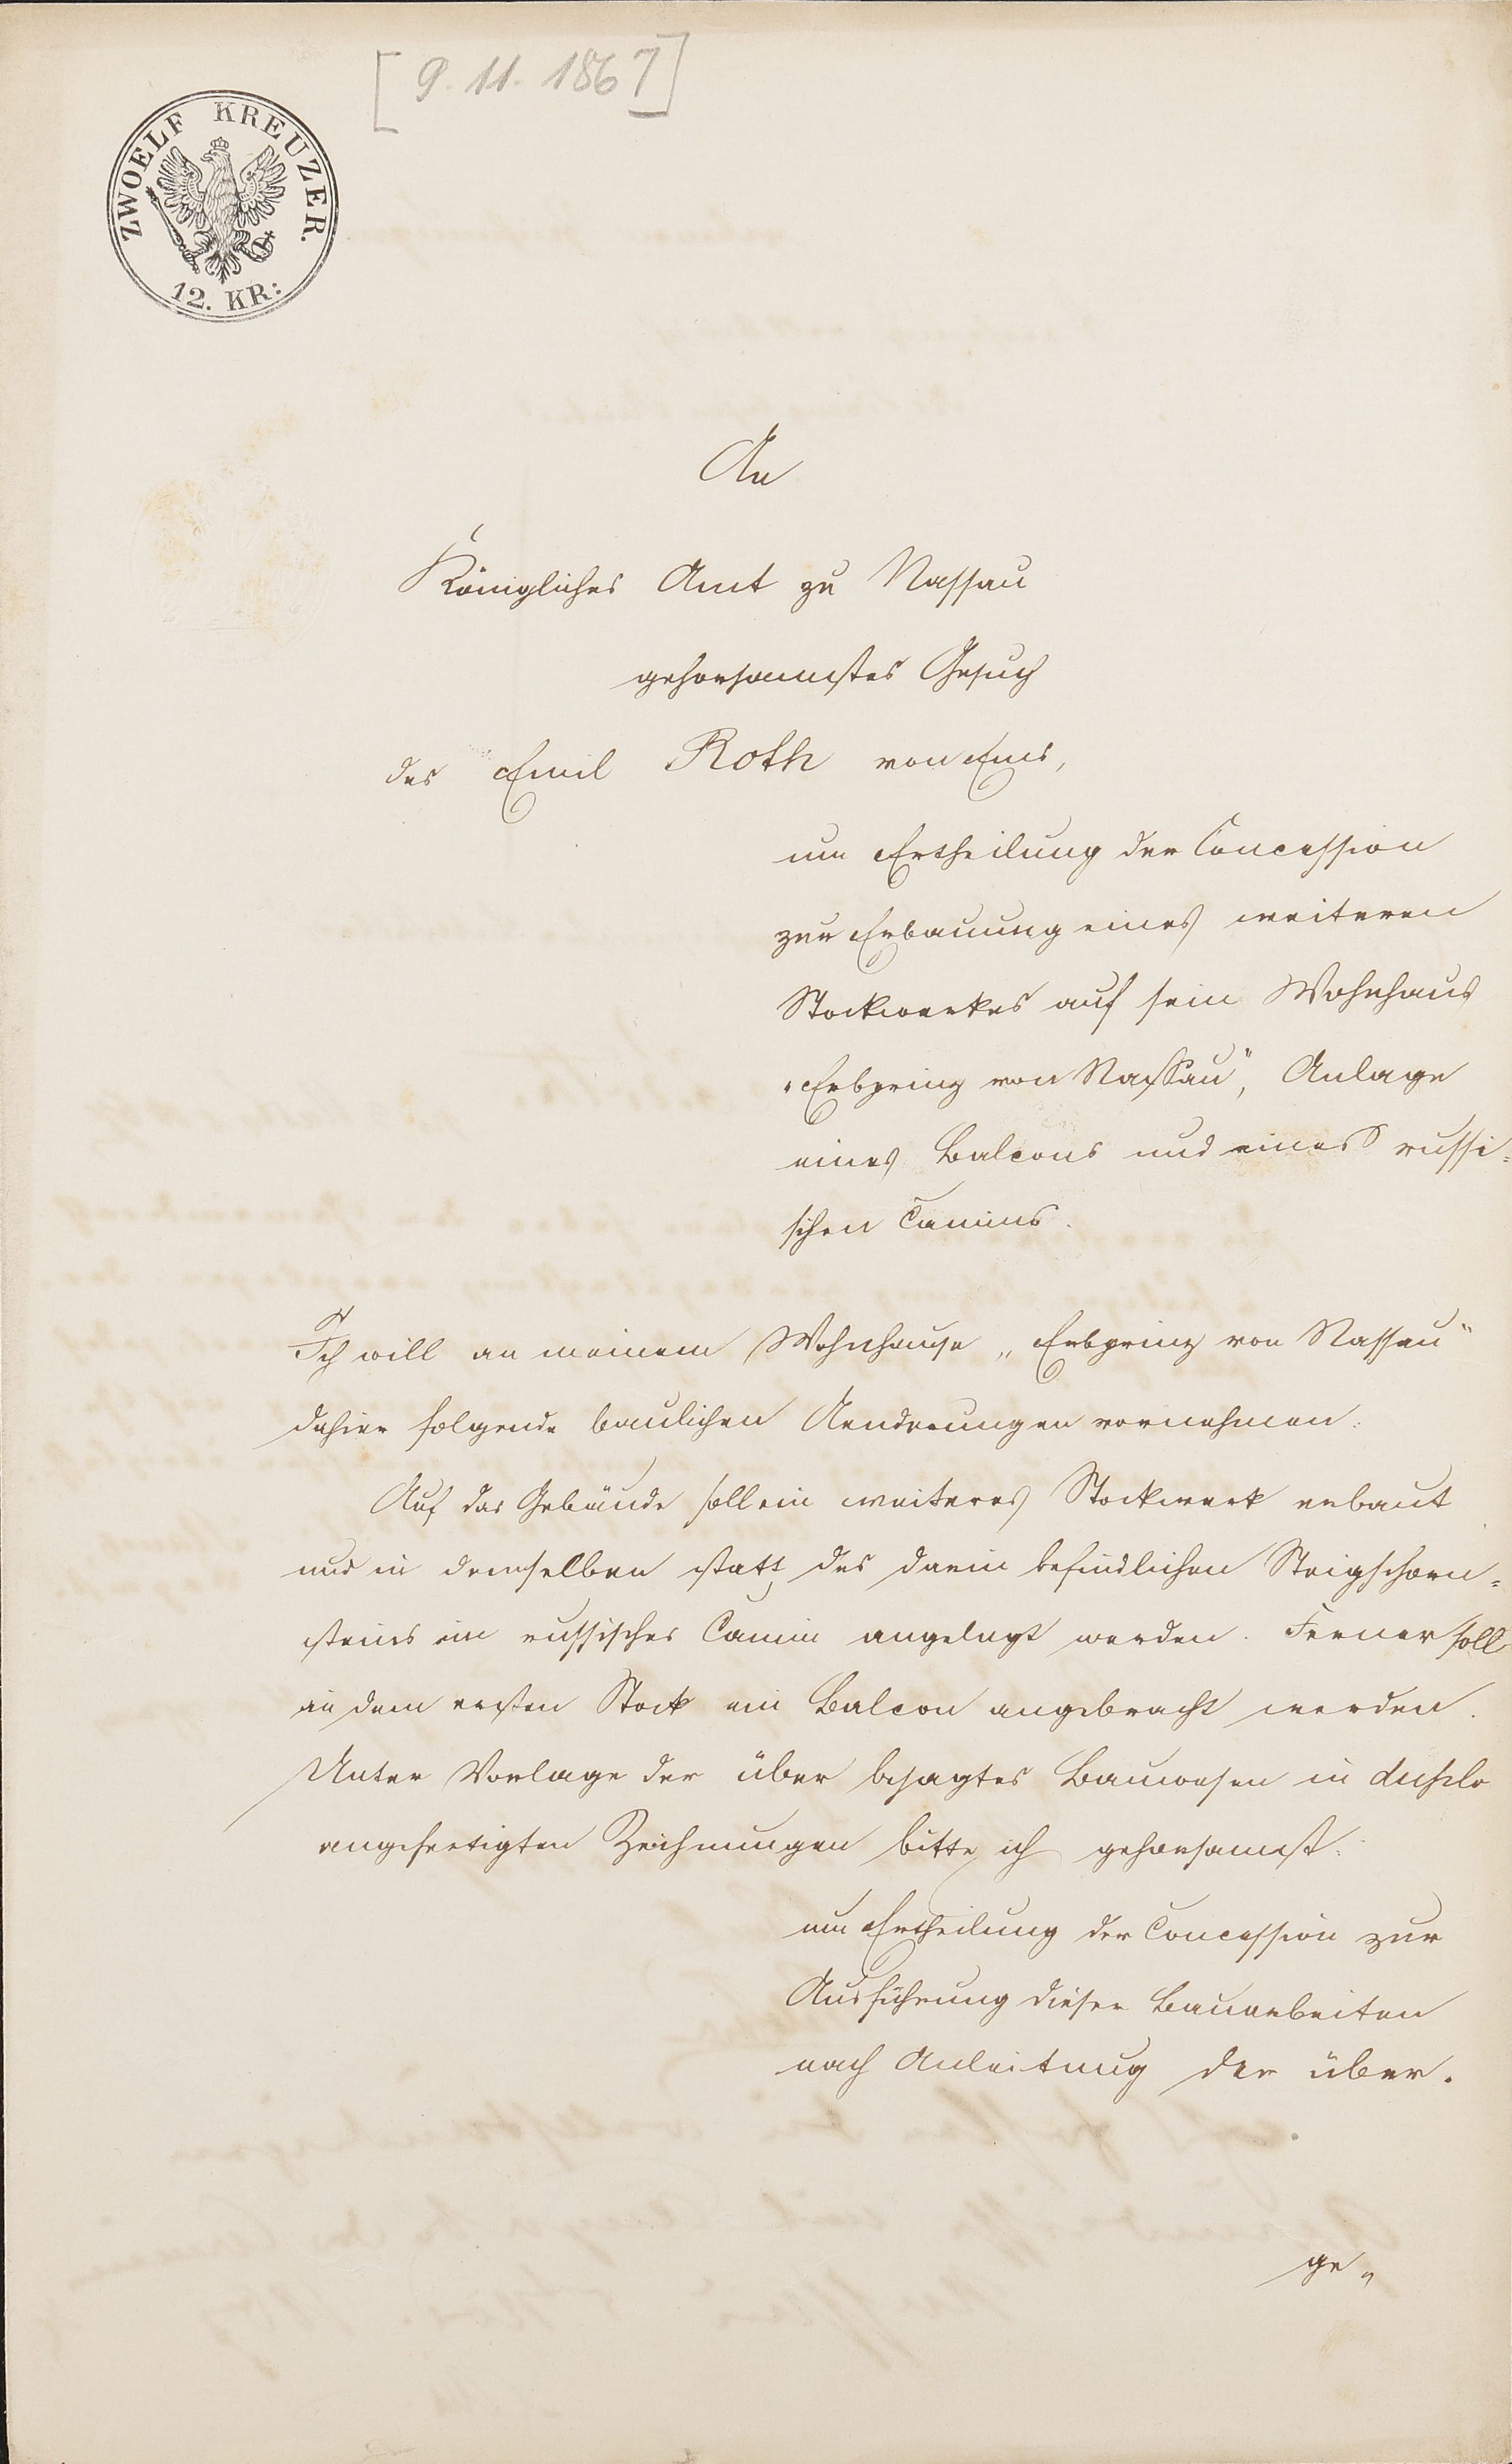 [9. 11. 1867]
ZWOELF KREUZER.
12. KR:
An
Königliches Amt zu Nassau
gehorsamstes Gesuch
des Emil Roth von Ems,
um Ertheilung der Concession
zur Erbauung eines weiteren
Stockwerkes auf sein Wohnhaus
„Erbprinz von Nassau“, Anlage
eines Balcons und eines russi-
schen Camins.
Ich will an meinem Wohnhause „Erbprinz von Nassau“
dahier folgende baulichen Aenderungen vornehmen:
Auf das Gebäude soll ein weiteres Stockwerk erbaut
und in demselben statt des darin befindlichen Steigschorn-
steins ein russisches Camin angelegt werden. Ferner soll
an dem ersten Stock ein Balcon angebracht werden.
Unter Vorlage der über besagtes Bauwesen in duplo
angefertigten Zeichnungen bitte ich gehorsamst:
um Ertheilung der Concession zur
Ausführung dieser Bauarbeiten
nach Anleitung der über-
ge-